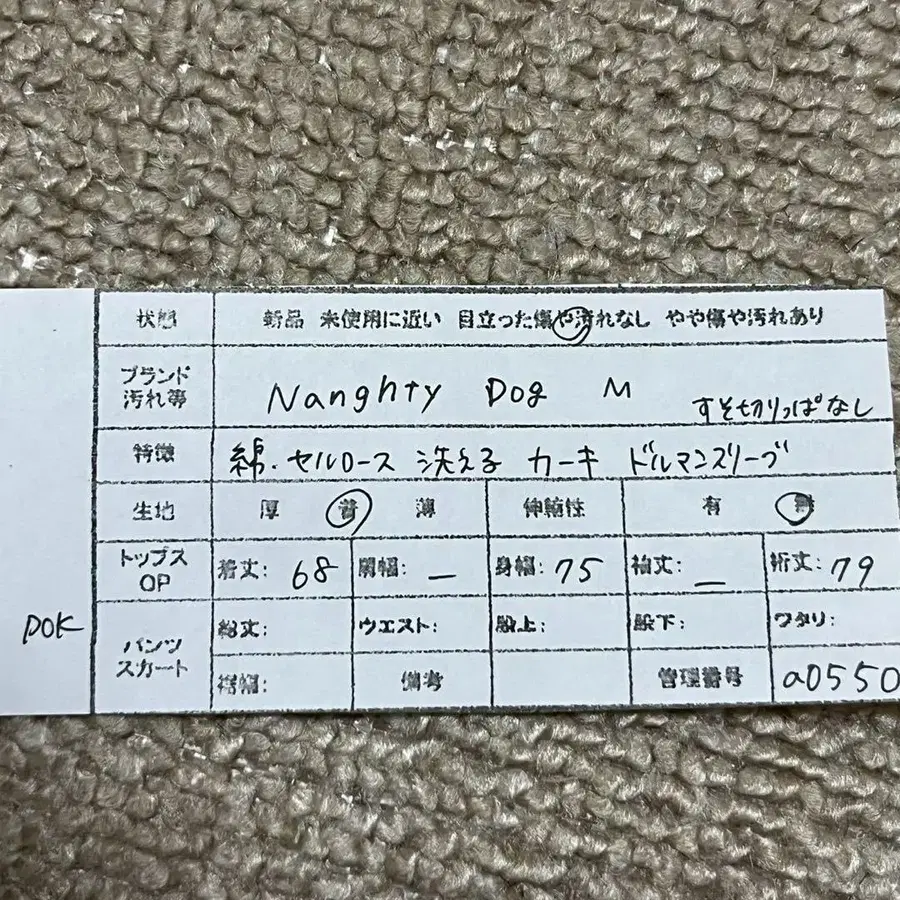 状態 新品 未使用に近い 目立った傷や汚れなし やや傷や汚れあり
ブランド
汚れ等 Nanghty Dog M すそ切りっぱなし
特徴 綿・セルロース 洗える カーキ ドルマンスリーブ
生地 厚 普 薄 伸縮性 有 無
トップス
OP 着丈: 68 肩幅: — 身幅: 75 袖丈: — 裄丈: 79
POK
パンツ
スカート 総丈: ウエスト: 股上: 股下: ワタリ:
裾幅: 備考 管理番号 a0550